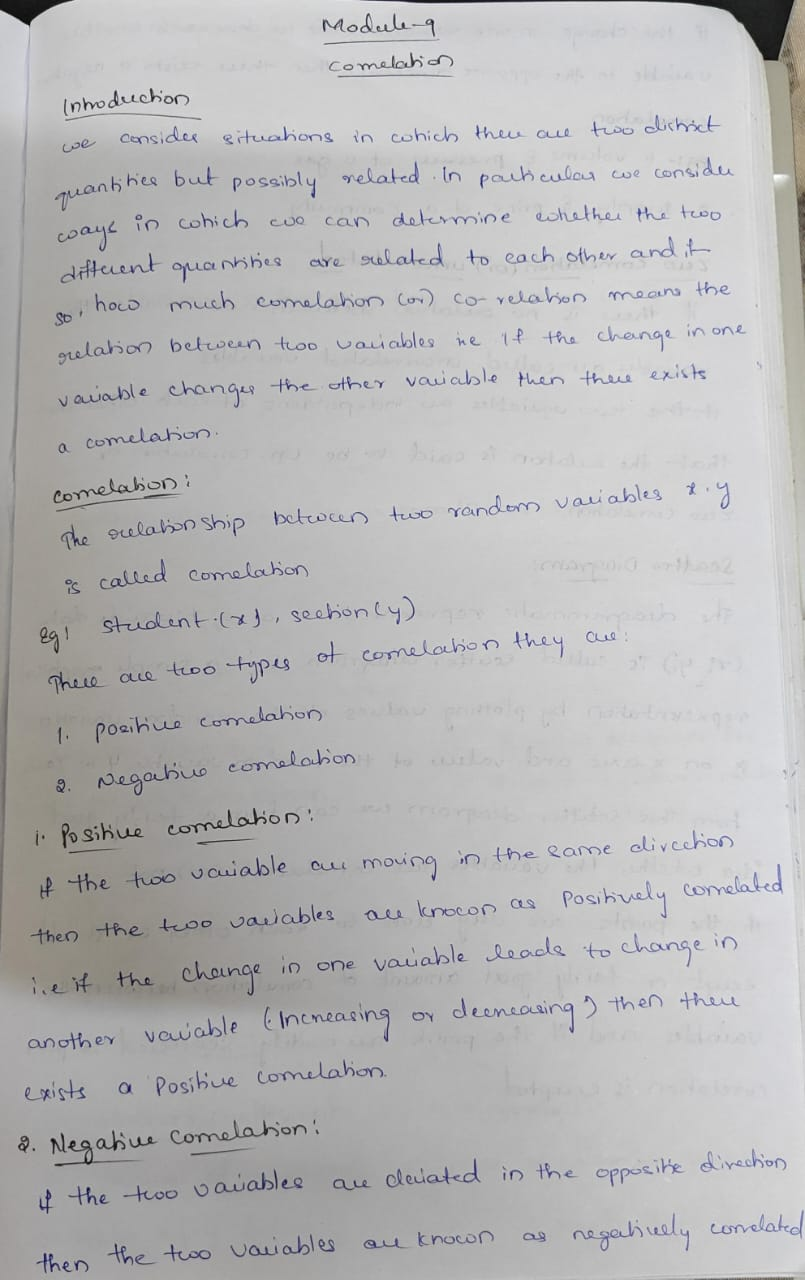 Module-9
Correlation
Introduction
we consider situations in which there are two distinct
quantities but possibly related. In particular we consider
ways in which we can determine whether the two
different quantities are related to each other and if
so, how much correlation (or) co-relation means the
relation between two variables ie If the change in one
variable changes the other variable then there exists
a correlation.
Correlation:
The relationship between two random variables x.y
is called correlation
Eg! student.(x), section(y)
There are two types of correlation they are:
1. Positive correlation
2. Negative correlation
1. Positive correlation:
If the two variable are moving in the same direction
then the two variables are known as Positively correlated
i.e if the change in one variable leads to change in
another variable (Increasing or decreasing) then there
exists a Positive correlation.
2. Negative Correlation:
if the two variables are deviated in the opposite direction
then the two variables are known as negatively correlated